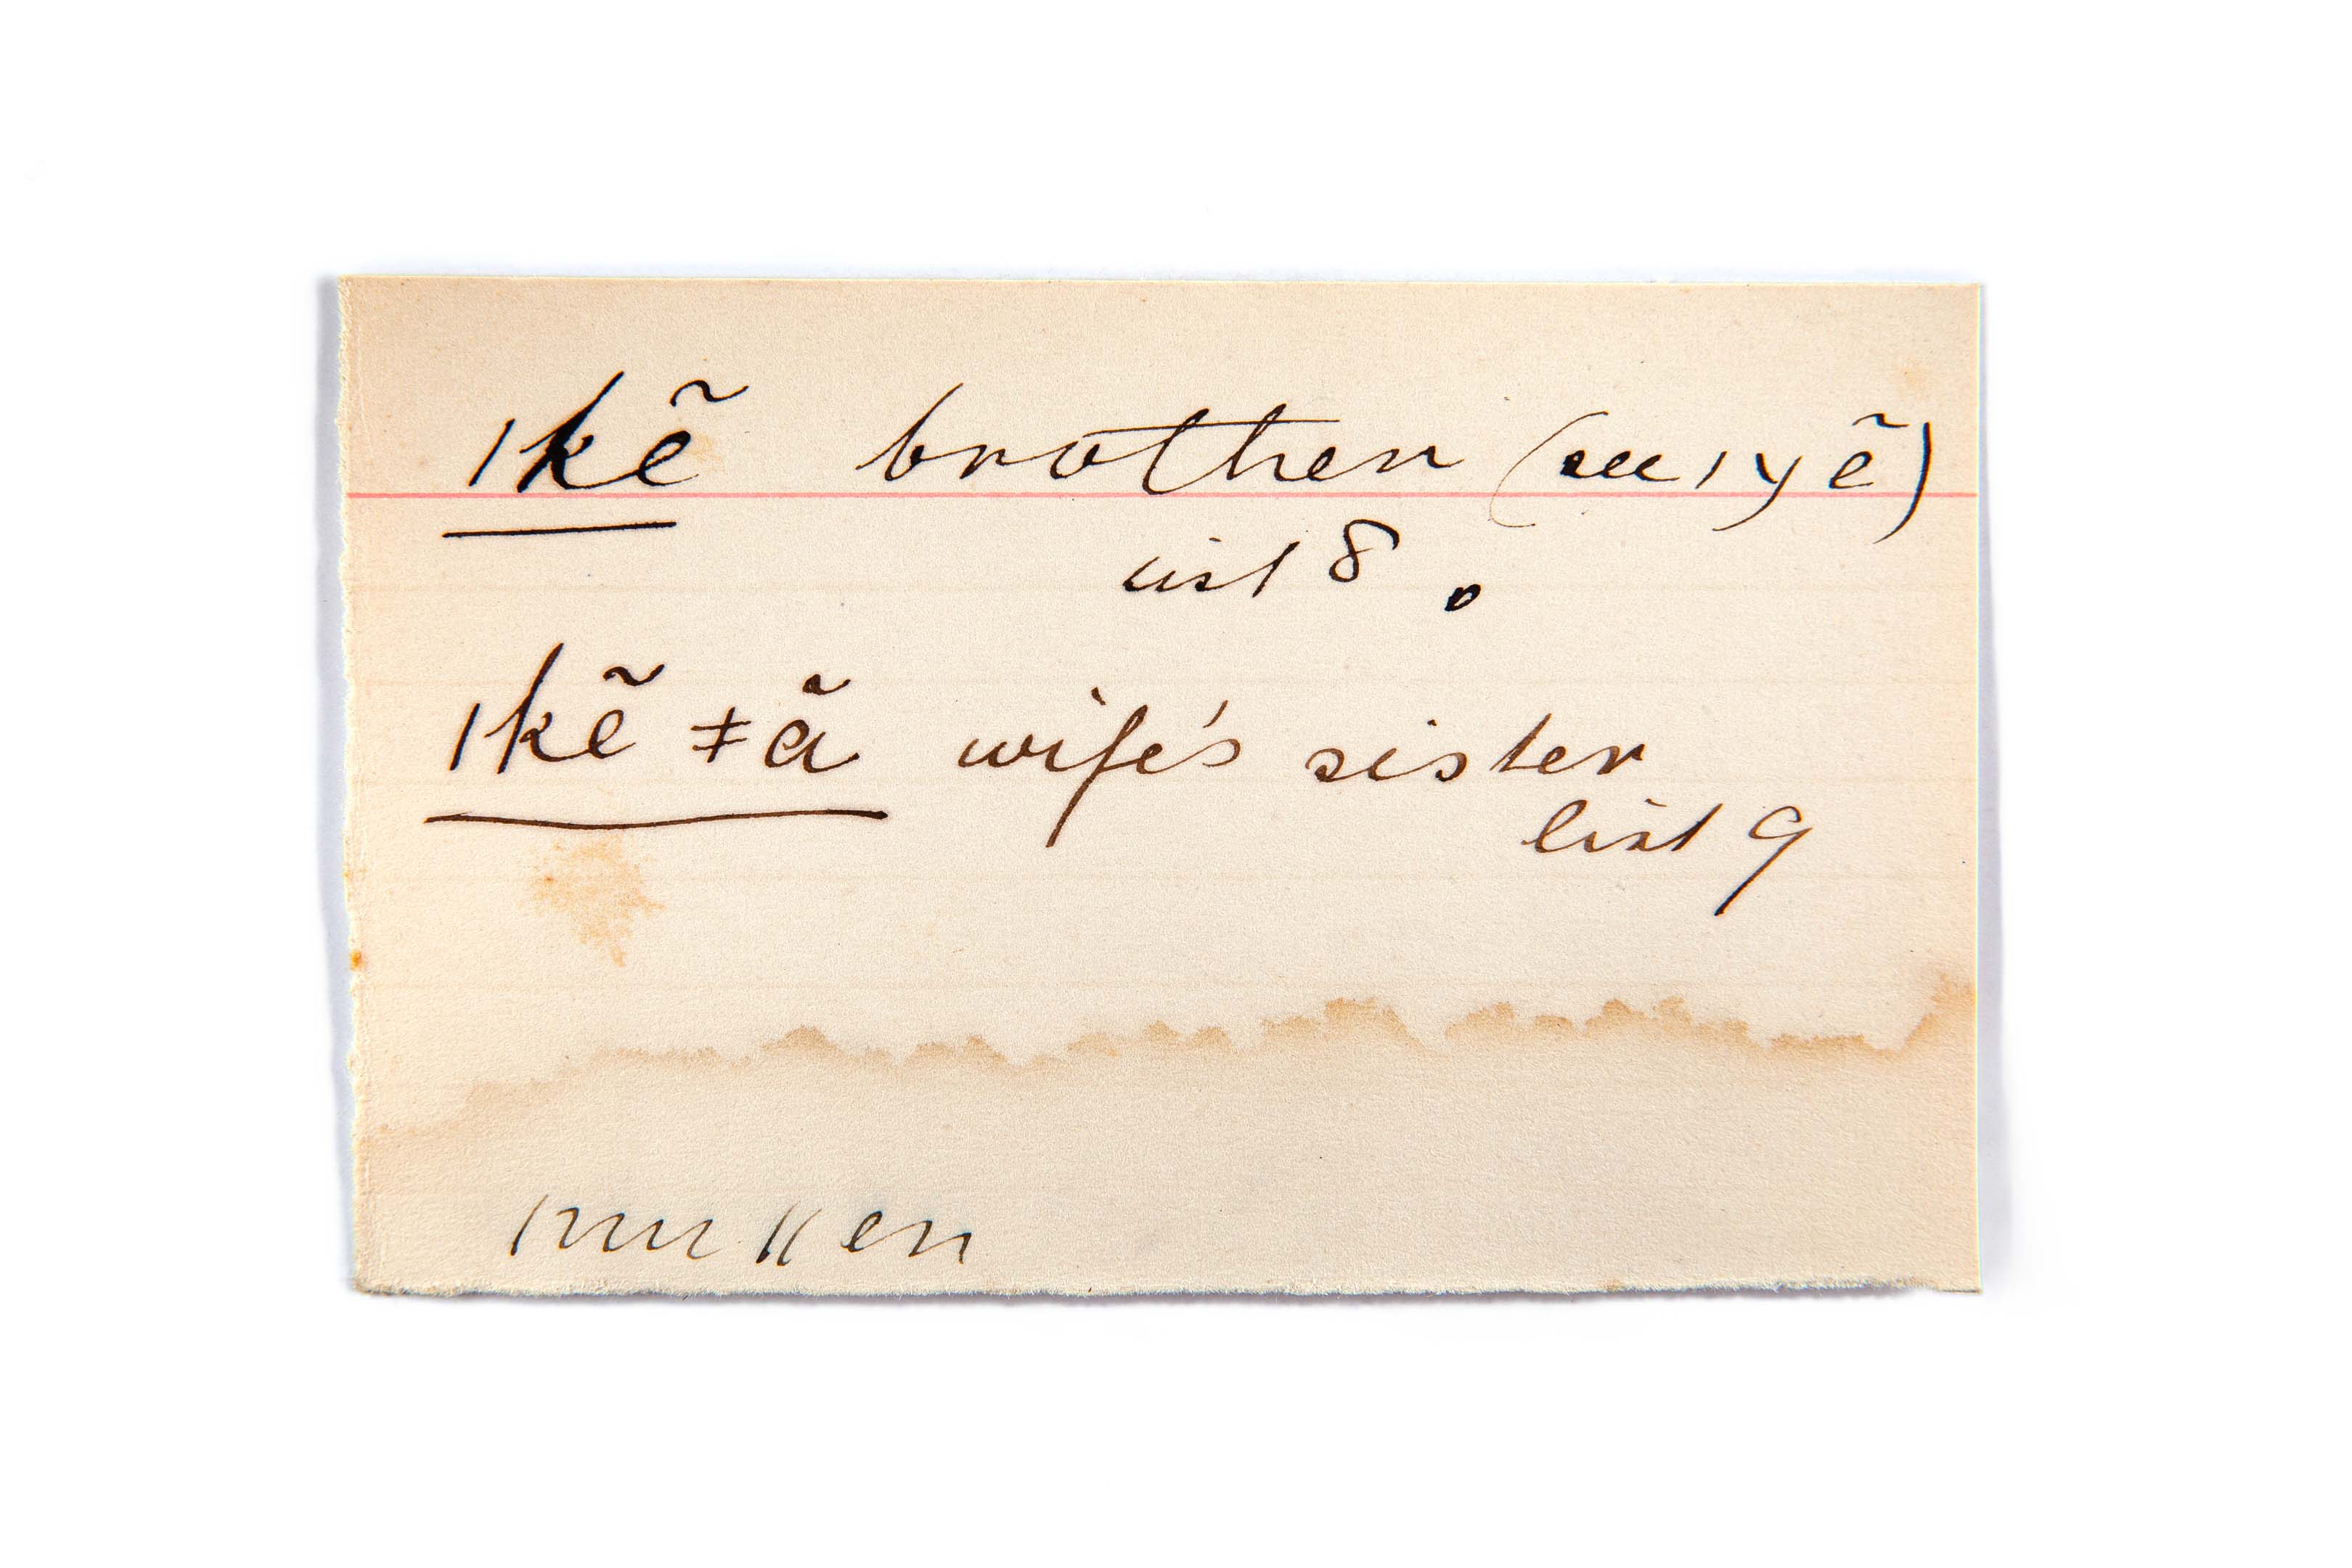 ǀkẽ brother (see ǀyẽ)
list 8.
ǀkẽ ǂã wife's sister
list 9
ǀnu ǁen